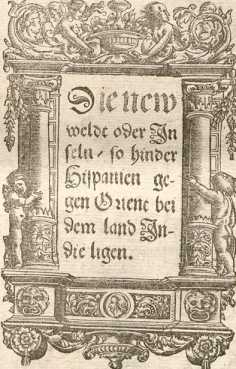 Die new
weldt oder In
seln / so hinder
Hispanien ge-
gen Orient bei
dem land In-
die ligen.